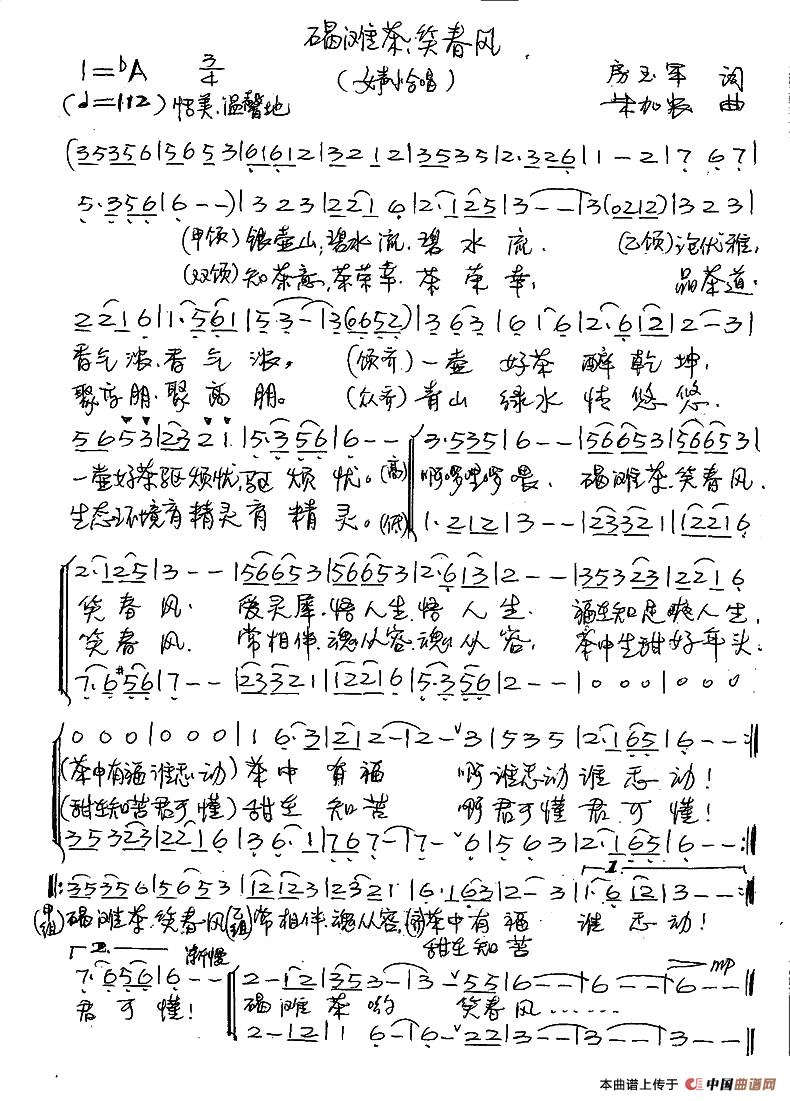 碣滩茶,笑春风
1=bA 3/4
(女声小合唱)
房玉军 词
朱加农 曲
(♩=112) 恬美、温馨地
(35356|56053|61612|3212|35353|2·326|1-2|767|
5·356|6--)|323|2216|2·125|3--|3(0212)|323|
(甲领)银壶山,碧水流,碧水流. (乙领)论优雅,
(双领)知茶意,茶荣幸,茶荣幸, 品茶道.
2216|1·561|5·3-|3(6652)|363|616|2·612|2-3|
香气浓,香气浓。 (领齐)一壶好茶醉乾坤,
聚高朋,聚高朋。 (众齐)青山绿水情悠悠.
5653|2321|5·356|6--|3·535|6--|566653|566653|
一壶好茶驱烦忧,驱烦忧。(高) 啊啰哩啰喂, 碣滩茶,笑春风,
生态环境育精灵育精灵。(低) 1·212|3--|23321|12216
2·125|3--|566653|566653|2·613|2--|35323|2216
笑春风. 爱灵犀,悟人生,悟人生. 福至知足映人生,
笑春风. 常相伴,魂从容,魂从容, 茶中生甜好年头.
7·6#56|7--|23321|12216|5·356|2--|000|000
000|000|16·3|212-|2-ᵛ3|535|2·165|6--:‖
(茶中有福谁忐动)茶中有福 啊谁忐动谁忐动!
(甜至知苦君可懂)甜至知苦 啊君可懂君可懂!
35323|2216|36·1|767-|7-ᵛ6|563|2·165|6--:‖
1.
‖:35356|56053|12123|2321|6·163|2-3|1·612|3--:‖
(甲组)碣滩茶,笑春风(乙组)常相伴,魂从容,(齐)茶中有福 谁忐动!
甜至知苦
2. 渐慢 mp
7·656|6--|2-12|353-|3-ᵛ55|6--|6--|6--‖
君可懂! 碣滩茶哟 笑春风……
2-12|16-|6-ᵛ22|3--|3--|3--‖
本曲谱上传于 中国曲谱网